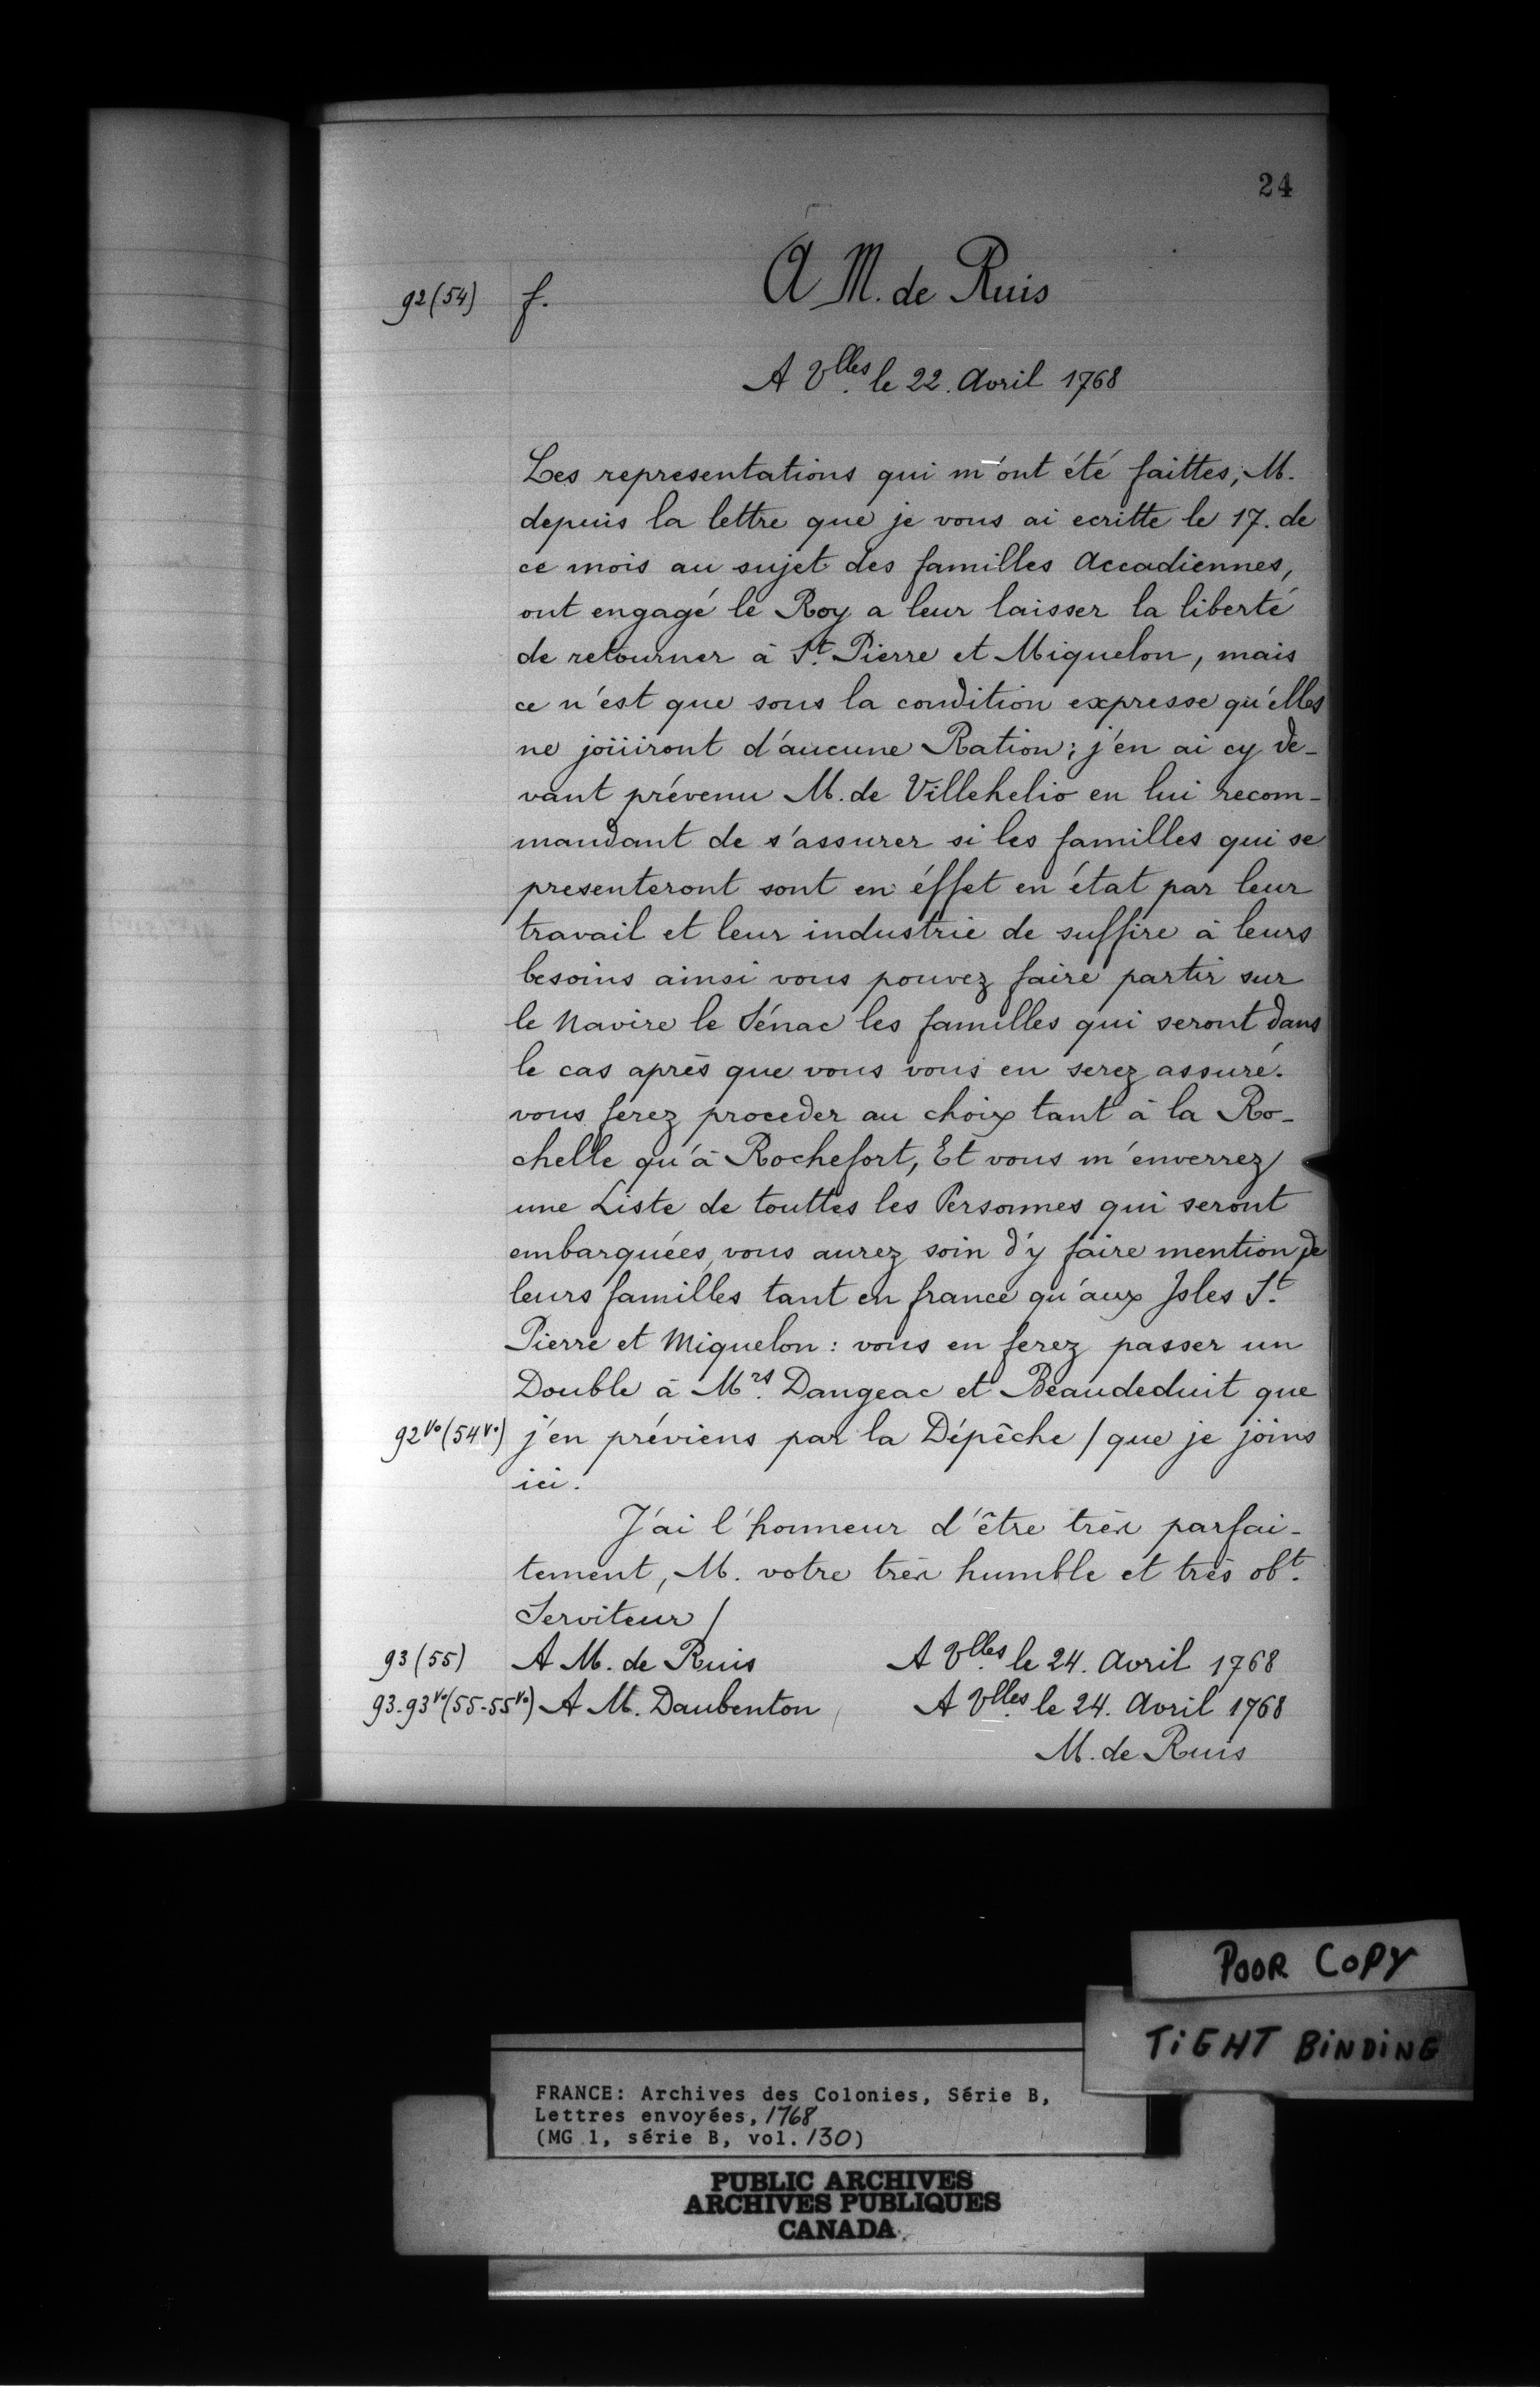 24
92 (54) f. A M. de Ruis
A Vlles. le 22. Avril 1768
Les representations qui m'ont été faittes, M.
depuis la lettre que je vous ai ecritte le 17. de
ce mois au sujet des familles Accadiennes,
ont engagé le Roy a leur laisser la liberté
de retourner à St. Pierre et Miquelon, mais
ce n'est que sous la condition expresse qu'élles
ne joüiront d'aucune Ration; j'en ai cy de-
vant prévenu M. de Villehelio en lui recom-
mandant de s'assurer si les familles qui se
presenteront sont en éffet en état par leur
travail et leur industrie de suffire à leurs
besoins ainsi vous pouvez faire partir sur
le Navire le Sénac les familles qui seront dans
le cas après que vous vous en serez assuré.
vous ferez proceder au choix tant à la Ro-
chelle qu'à Rochefort, Et vous m'enverrez
une Liste de touttes les Personnes qui seront
embarquées, vous aurez soin d'y faire mention de
leurs familles tant en france qu'aux Isles St.
Pierre et Miquelon : vous en ferez passer un
Double à Mrs. Dangeac et Beaudeduit que
92vo (54vo) j'en préviens par la Dépêche / que je joins
ici.
J'ai l'honneur d'être très parfai-
tement, M. votre très humble et très obt.
Serviteur /
93 (55) A M. de Ruis A Vlles. le 24. Avril 1768
93-93vo (55-55vo) A M. Daubenton A Vlles. le 24. Avril 1768
M. de Ruis
POOR COPY
TIGHT BINDING
FRANCE: Archives des Colonies, Série B,
Lettres envoyées, 1768
(MG 1, série B, vol. 130)
PUBLIC ARCHIVES
ARCHIVES PUBLIQUES
CANADA